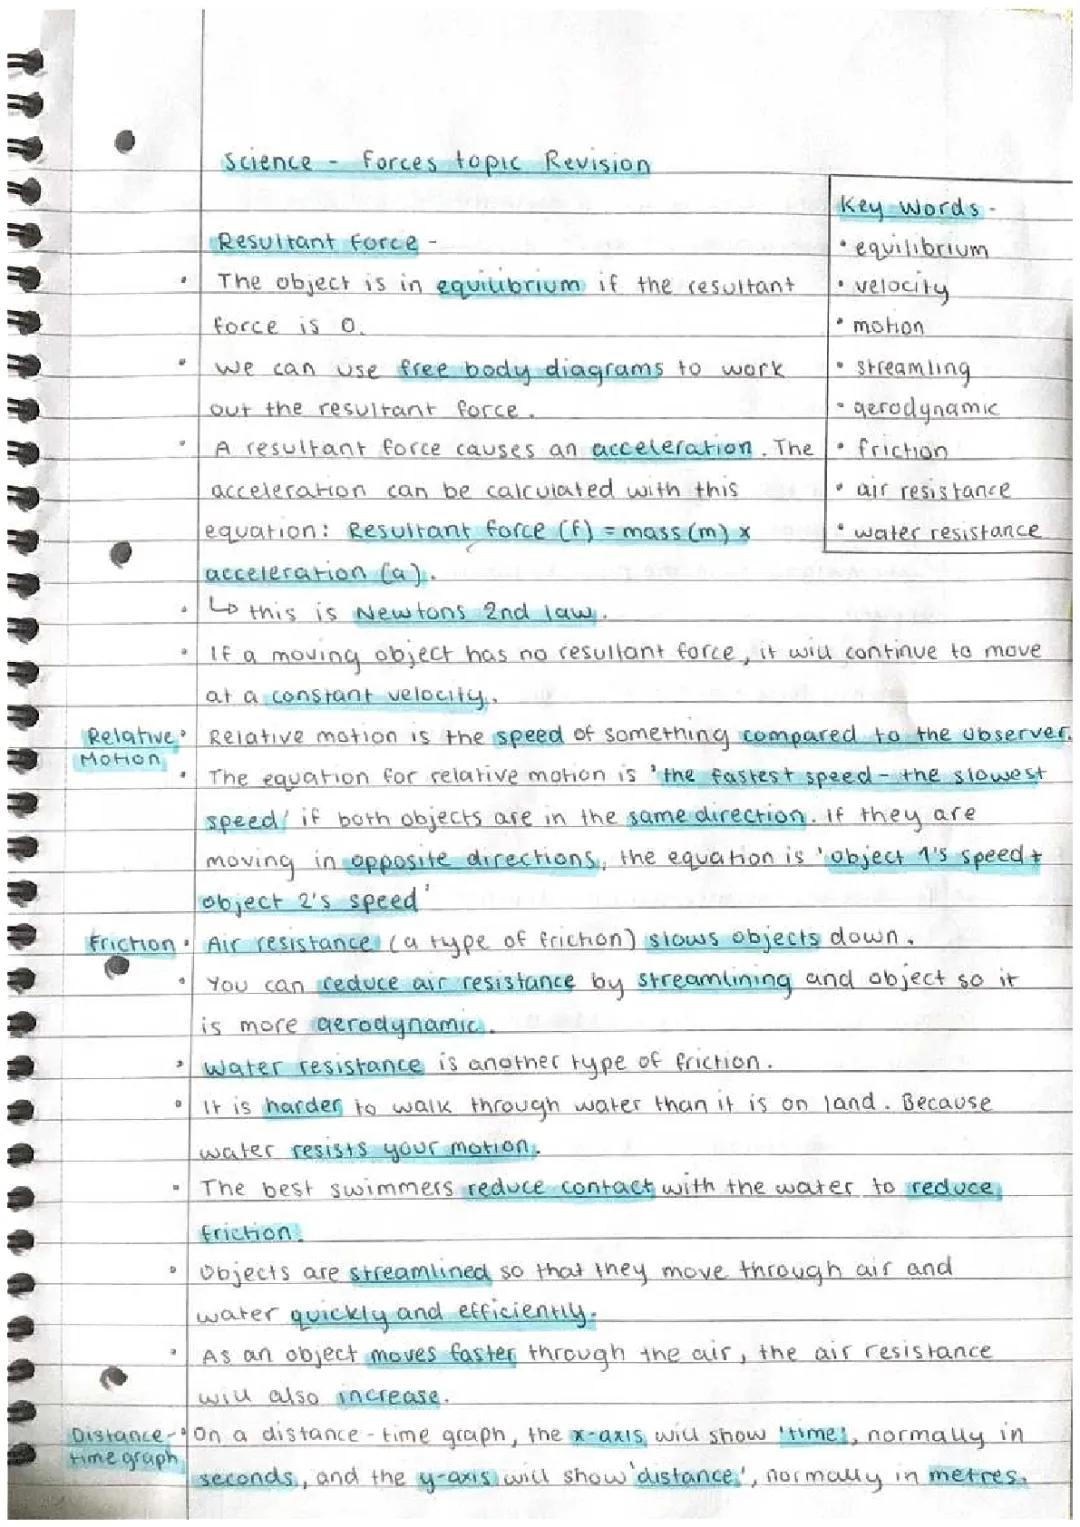 Science - Forces topic Revision
Key words -
• equilibrium
• velocity
• motion
• streamling
• aerodynamic
• friction
• air resistance
• water resistance
Resultant Force -
• The object is in equilibrium if the resultant
force is 0.
• We can use free body diagrams to work
out the resultant force.
• A resultant force causes an acceleration. The
acceleration can be calculated with this
equation: Resultant force (f) = mass (m) x
acceleration (a).
• ↳ this is Newtons 2nd law.
• If a moving object has no resultant force, it will continue to move
at a constant velocity.
Relative Motion
• Relative motion is the speed of something compared to the observer.
• The equation for relative motion is 'the fastest speed - the slowest
speed' if both objects are in the same direction. if they are
moving in opposite directions, the equation is 'object 1's speed +
object 2's speed'
Friction • Air resistance (a type of friction) slows objects down.
• You can reduce air resistance by streamlining and object so it
is more aerodynamic.
• Water resistance is another type of friction.
• It is harder to walk through water than it is on land. Because
water resists your motion.
• The best swimmers reduce contact with the water to reduce
friction.
• Objects are streamlined so that they move through air and
water quickly and efficiently.
• As an object moves faster through the air, the air resistance
will also increase.
Distance-time graph
• On a distance-time graph, the x-axis will show 'time', normally in
seconds, and the y-axis will show 'distance', normally in metres.